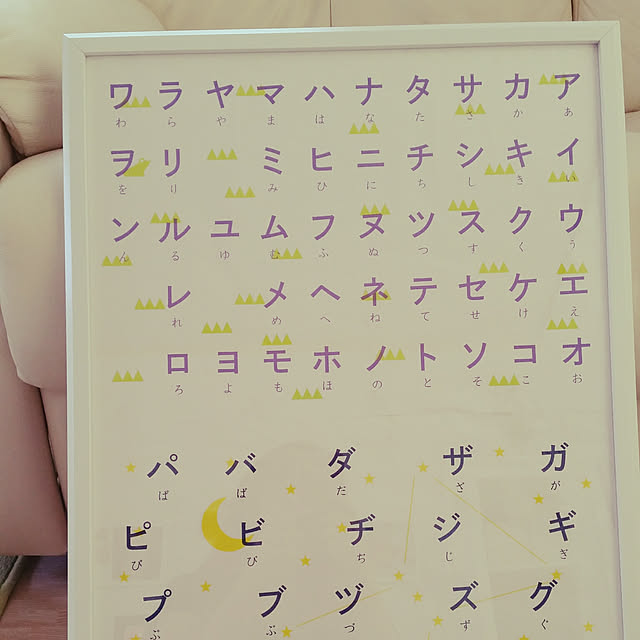 ワ ラ ヤ マ ハ ナ タ サ カ ア
わ ら や ま は な た さ か あ
ヲ リ ミ ヒ ニ チ シ キ イ
を り み ひ に ち し き い
ン ル ユ ム フ ヌ ツ ス ク ウ
ん る ゆ む ふ ぬ つ す く う
レ メ ヘ ネ テ セ ケ エ
れ め へ ね て せ け え
ロ ヨ モ ホ ノ ト ソ コ オ
ろ よ も ほ の と そ こ お
パ バ ダ ザ ガ
ぱ ば だ ざ が
ピ ビ ヂ ジ ギ
ぴ び ぢ じ ぎ
プ ブ ヅ ズ グ
ぷ ぶ づ ず ぐ